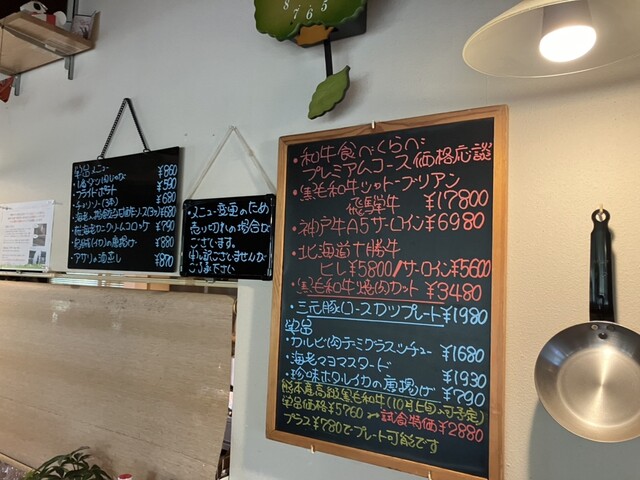 8 7 6 5
単品メニュー ¥860
¥590
フライドポテト ¥680
チョリソー(3本) ¥680
¥680
クリームコロッケ ¥790
の唐揚げ ¥880
アサリの酒蒸し ¥870
メニュー変更のため
売り切れの場合が
ございます。
申し訳ございませんが
ご了承下さい
・和牛食べくらべ
プレミアムコース価格応談
・黒毛和牛シャトーブリアン
飛騨牛 ¥17800
・神戸牛A5サーロイン¥6980
・北海道十勝牛
ヒレ¥5800/サーロイン¥5600
・黒毛和牛焼肉カット¥3480
・三元豚ロースカツプレート¥1980
単品
・カルビ肉デミグラスシチュー ¥1680
・海老マヨマスタード ¥1930
・珍味ホタルイカの唐揚げ ¥790
熊本産高級黒毛和牛(10月上旬入荷予定)
単品価格¥5760→試食特価¥2880
プラス¥780でプレート可能です